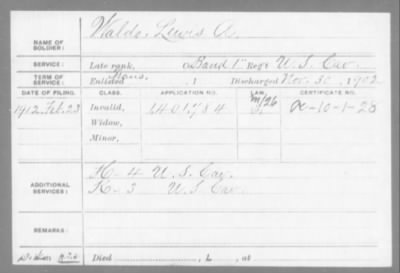 NAME OF SOLDIER: Waldo, Lewis A.
SERVICE: Late rank, Band 1" Reg't U.S. Cav.
TERM OF SERVICE: Enlisted , 1 Discharged Nov. 30, 1902
DATE OF FILING. CLASS. APPLICATION NO. LAW. CERTIFICATE NO.
1912 Feb. 23 Invalid, 1401784
Widow,
Minor,
ADDITIONAL SERVICES: H- 4 U.S. Cav.
K- 3 U.S. Cav.
REMARKS:
Died , 1 , at